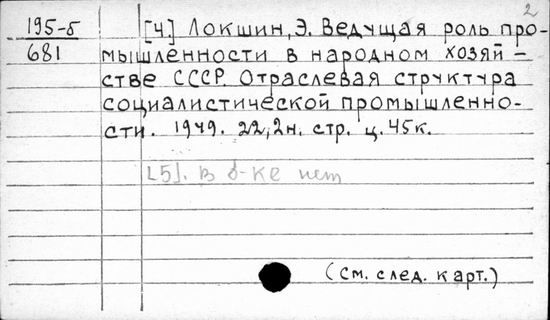 2
195-б
681
[4.] Локшин, Э. Ведущая роль про-
мышленности в народном хозяй-
стве СССР. Отраслевая структура
социалистической промышленно-
сти. 1949. 22,2н. стр. ц. 45к.
[5]. в б-ке нет
(см. след. карт.)